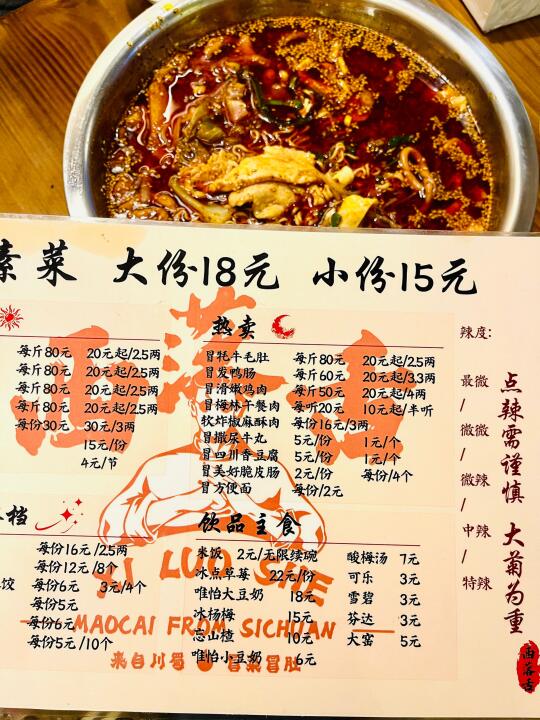 素菜 大份18元 小份15元
每斤80元 20元起/2.5两
每斤80元 20元起/2.5两
每斤80元 20元起/2.5两
每斤80元 20元起/2.5两
每份30元 30元/3两
15元/份
4元/节
热卖
冒牦牛毛肚 每斤80元 20元起/2.5两
冒发鸭肠 每斤60元 20元起/3.3两
冒滑嫩鸡肉 每斤50元 20元起/4两
冒梅林午餐肉 每听20元 10元起/半听
软炸椒麻酥肉 每份16元/3两
冒撒尿牛丸 5元/份 1元/个
冒四川香豆腐 5元/份 1元/个
冒美好脆皮肠 2元/份 每份/4个
冒方便面 每份/2元
档
每份16元/2.5两
每份12元/8个
饺 每份6元 3元/4个
每份5元
每份6元
每份5元/10个
饮品主食
米饭 2元/无限续碗
冰点草莓 22元/份
唯怡大豆奶 18元
冰杨梅 15元
忘山楂 10元
唯怡小豆奶 6元
酸梅汤 7元
可乐 3元
雪碧 3元
芬达 3元
大窑 5元
辣度:
最微
/
微微
/
微辣
/
中辣
/
特辣
点辣需谨慎 大菊为重
西落舌
YI LUO SHE
MAOCAI FROM SICHUAN
来自川蜀 冒菜冒肚